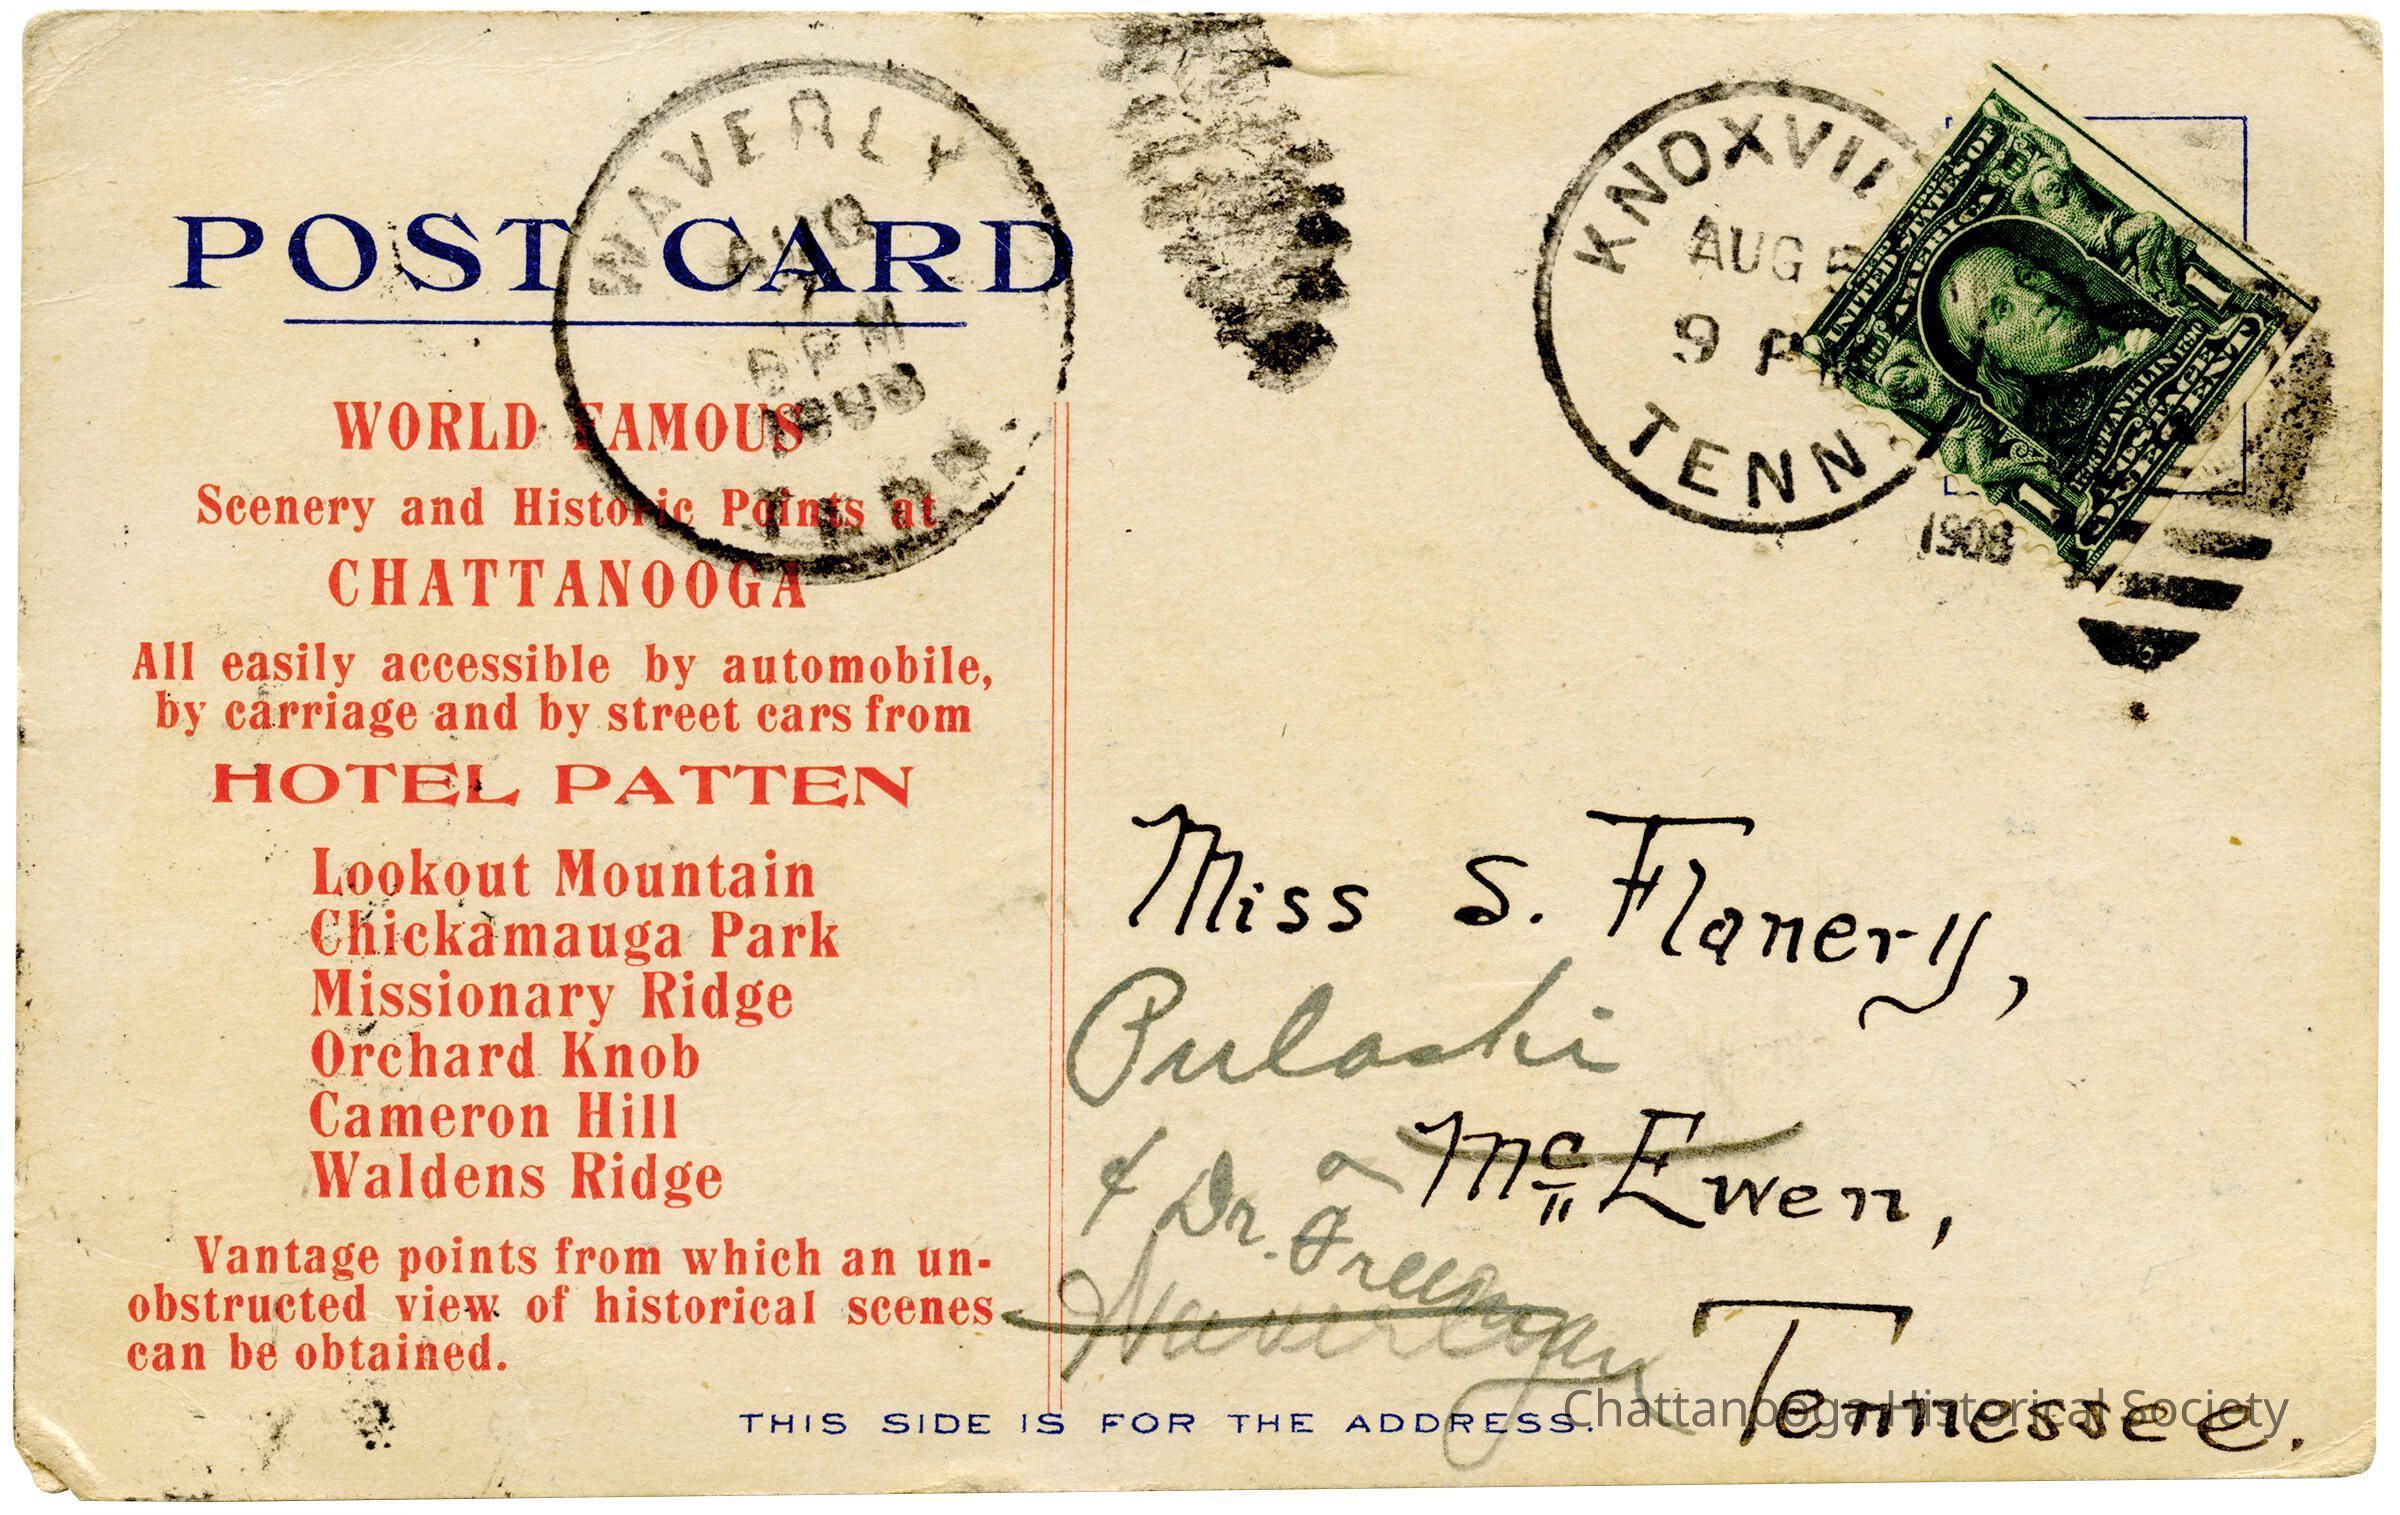 WAVERLY
AUG
7
6 PM
1908
TENN.
KNOXVILL
AUG 5
9 P
TENN
1908
UNITED STATES OF AMERICA
1
1
FRANKLIN
POSTAGE
ONE CENT
POST CARD
WORLD FAMOUS
Scenery and Historic Points at
CHATTANOOGA
All easily accessible by automobile,
by carriage and by street cars from
HOTEL PATTEN
Lookout Mountain
Chickamauga Park
Missionary Ridge
Orchard Knob
Cameron Hill
Waldens Ridge
Vantage points from which an un-
obstructed view of historical scenes
can be obtained.
Miss S. Flanery,
Pulaski
Mc Ewen,
Dr. Freeman
Waverly
Tennessee.
THIS SIDE IS FOR THE ADDRESS.
Chattanooga Historical Society